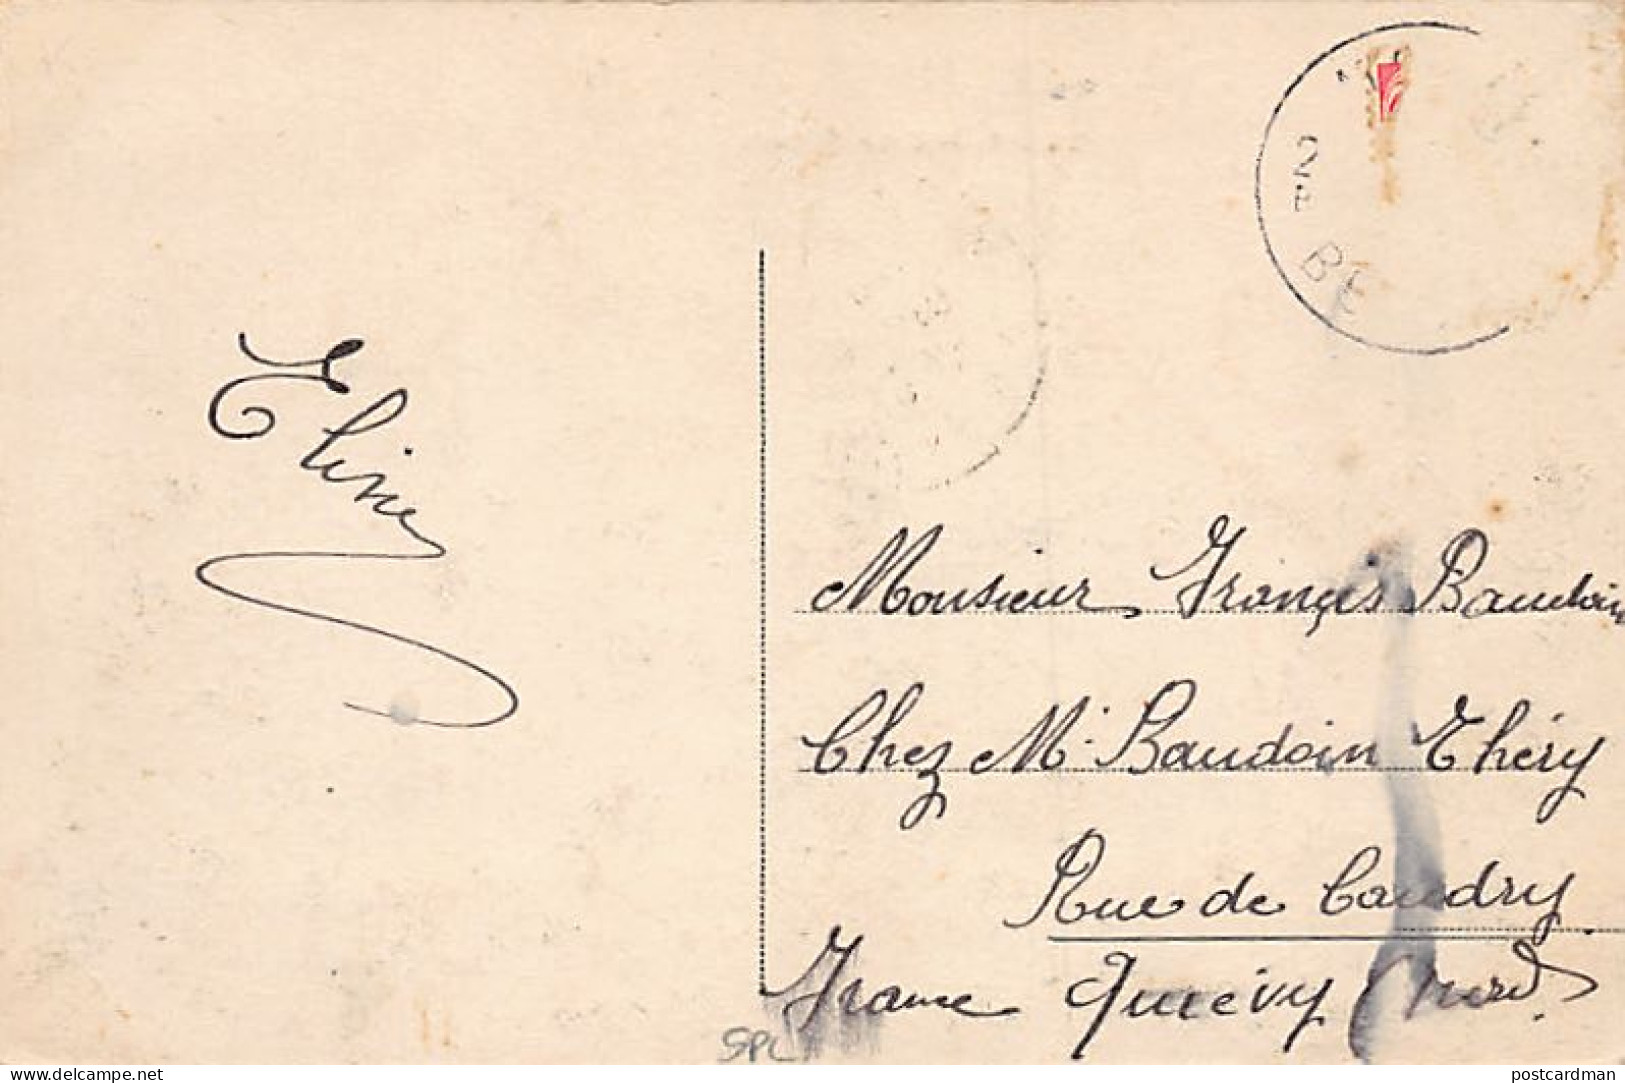 2
BE
Eline
Monsieur François Baudoin
Chez Mr. Baudoin Théry
Rue de Caudry
France Quiévy (Nord)
SPL
www.delcampe.net
postcardman